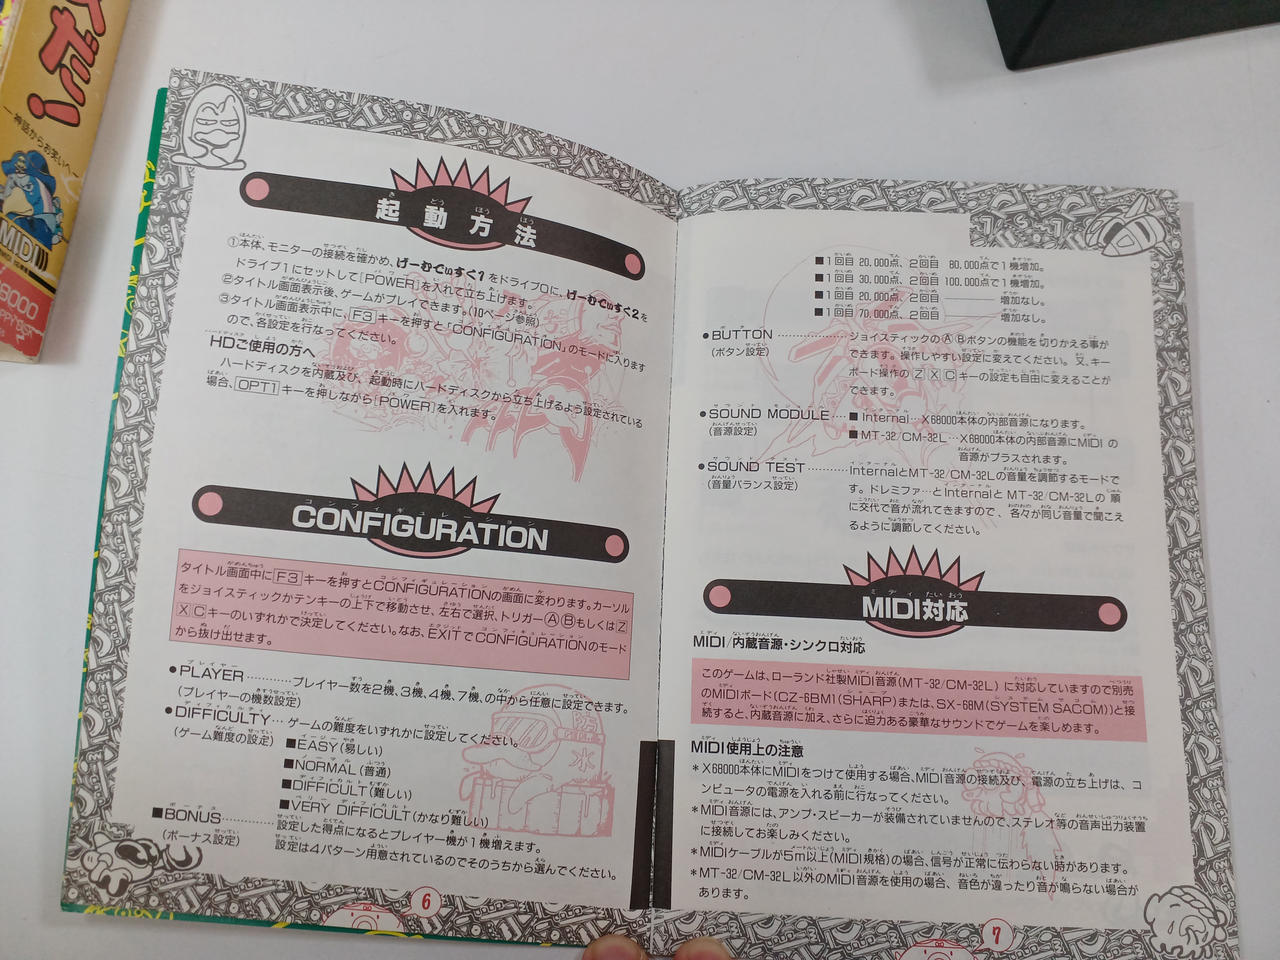 だ!
―神話からお笑いへ―
MIDI
起動方法
①本体、モニターの接続を確かめ、げーむでぃすく1をドライブ0に、げーむでぃすく2を
ドライブ1にセットして[POWER]を入れて立ち上げます。
②タイトル画面表示後、ゲームがプレイできます。(10ページ参照)
③タイトル画面表示中に、F3キーを押すと「CONFIGURATION」のモードに入ります
ので、各設定を行なってください。
HDご使用の方へ
ハードディスクを内蔵及び、起動時にハードディスクから立ち上げるよう設定されている
場合、OPT1キーを押しながら[POWER]を入れます。
CONFIGURATION
タイトル画面中にF3キーを押すとCONFIGURATIONの画面に変わります。カーソル
をジョイスティックかテンキーの上下で移動させ、左右で選択、トリガーⒶⒷもしくはZ
XCキーのいずれかで決定してください。なお、EXITでCONFIGURATIONのモード
から抜け出せます。
●PLAYER…………プレイヤー数を2機、3機、4機、7機、の中から任意に設定できます。
(プレイヤーの機数設定)
●DIFFICULTY……ゲームの難度をいずれかに設定してください。
(ゲーム難度の設定)
■EASY(易しい)
■NORMAL(普通)
■DIFFICULT(難しい)
■VERY DIFFICULT(かなり難しい)
■BONUS……………設定した得点になるとプレイヤー機が1機増えます。
(ボーナス設定) 設定は4パターン用意されているのでそのうちから選んでください。
6
■1回目 20,000点、2回目 80,000点で1機増加。
■1回目 30,000点、2回目 100,000点で1機増加。
■1回目 20,000点、2回目 ――― 増加なし。
■1回目 70,000点、2回目 ――― 増加なし。
●BUTTON……………ジョイスティックのⒶⒷボタンの機能を切りかえる事が
(ボタン設定) できます。操作しやすい設定に変えてください。又、キー
ボード操作のZXCキーの設定も自由に変えることが
できます。
●SOUND MODULE……■Internal…X68000本体の内部音源になります。
(音源設定) ■MT-32/CM-32L…X68000本体の内部音源にMIDIの
音源がプラスされます。
●SOUND TEST…………InternalとMT-32/CM-32Lの音量を調節するモードで
(音量バランス設定) す。ドレミファ…とInternalとMT-32/CM-32Lの順
に交代で音が流れてきますので、各々が同じ音量で聞こえ
るように調節してください。
MIDI対応
MIDI/内蔵音源・シンクロ対応
このゲームは、ローランド社製MIDI音源(MT-32/CM-32L)に対応していますので別売
のMIDIボード(CZ-6BM1(SHARP)または、SX-68M(SYSTEM SACOM))と接
続すると、内蔵音源に加え、さらに迫力ある豪華なサウンドでゲームを楽しめます。
MIDI使用上の注意
*X68000本体にMIDIをつけて使用する場合、MIDI音源の接続及び、電源の立ち上げは、コ
ンピュータの電源を入れる前に行なってください。
*MIDI音源には、アンプ・スピーカーが装備されていませんので、ステレオ等の音声出力装置
に接続してお楽しみください。
*MIDIケーブルが5m以上(MIDI規格)の場合、信号が正常に伝わらない時があります。
*MT-32/CM-32L以外のMIDI音源を使用の場合、音色が違ったり音が鳴らない場合が
あります。
7